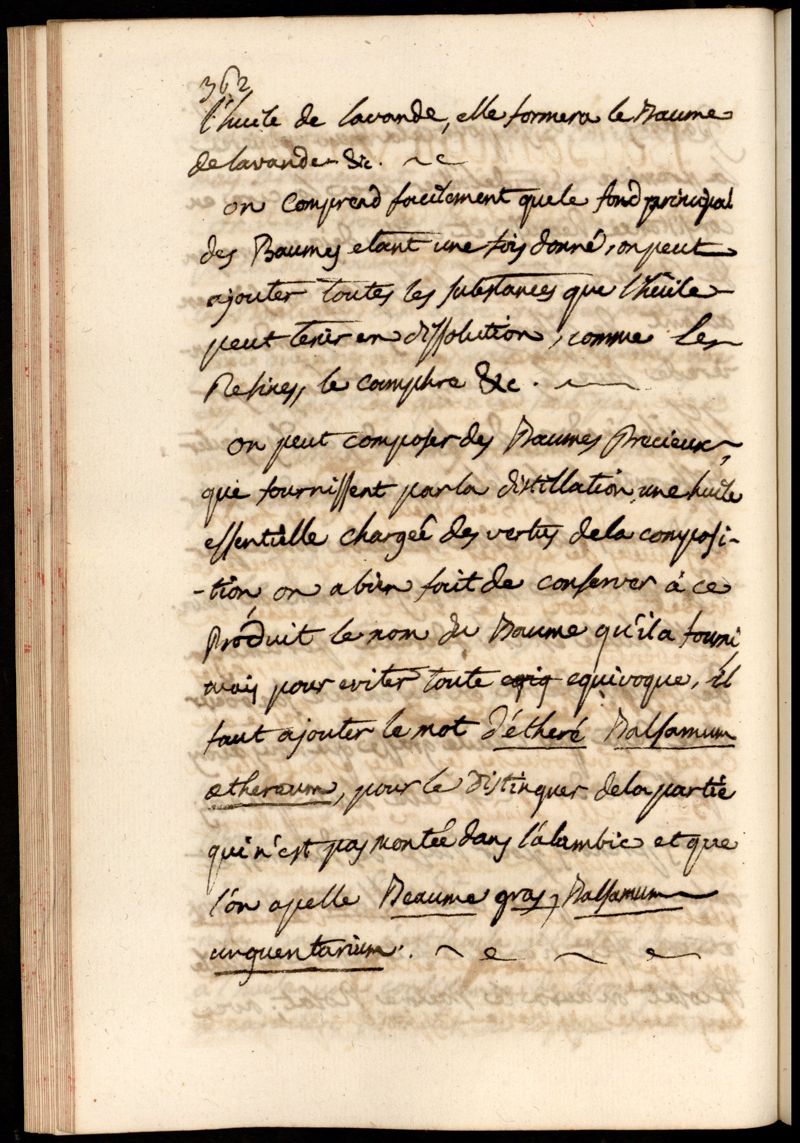 362
l'huile de lavande, elle formera le Baume
de lavande &c.
on comprend facilement que le fond principal
des Baumes etant une fois donné, on peut
ajouter toutes les substances que l'huile
peut tenir en dissolution, comme les
Resines, le camphre &c.
on peut composer des Baumes Precieux,
qui fournissent par la distillation une huile
essentielle chargeê des vertus de la composi-
-tion on a bien fait de conserver à ce
Produit le nom du Baume qu'il a fourni,
mais pour eviter toute equivoque, il
faut ajouter le mot d'étheré Balsamum
æthereum, pour le distinguer de la partie
qui n'est pas monteé dans l'alambic et que
l'on apelle Beaume gras, Balsamum
unguentarium.